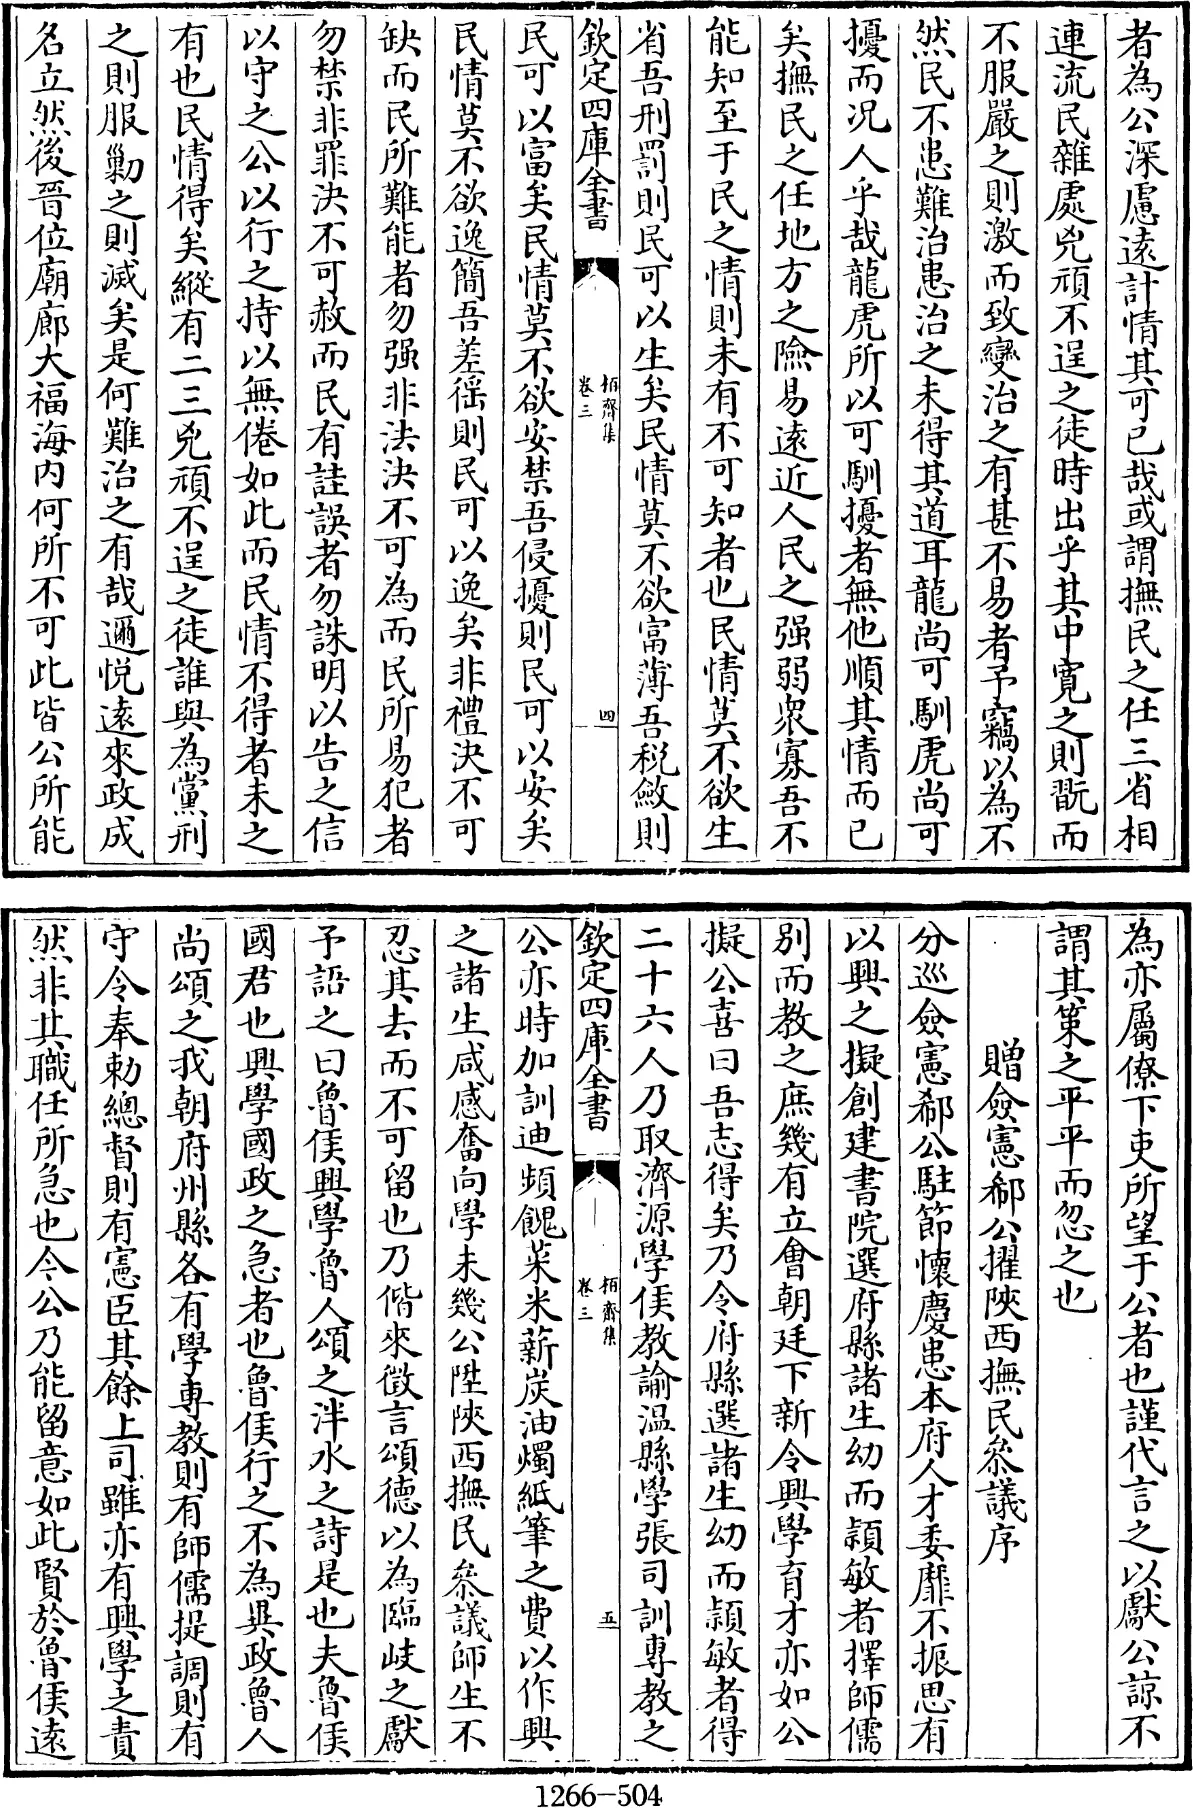 者為公深慮遠計情其可已哉或謂撫民之任三省相
連流民雜處兇頑不逞之徒時出乎其中寛之則翫而
不服嚴之則激而致變治之有甚不易者予竊以為不
然民不患難治患治之未得其道耳龍尚可馴虎尚可
擾而况人乎哉龍虎所以可馴擾者無他順其情而已
矣撫民之任地方之險易遠近人民之强弱衆寡吾不
能知至于民之情則未有不可知者也民情莫不欲生
省吾刑罰則民可以生矣民情莫不欲富薄吾税斂則
欽定四庫全書
栢齋集
卷三
四
民可以富矣民情莫不欲安禁吾侵擾則民可以安矣
民情莫不欲逸簡吾差徭則民可以逸矣非禮決不可
缺而民所難能者勿强非法決不可為而民所易犯者
勿禁非罪決不可赦而民有詿誤者勿誅明以告之信
以守之公以行之持以無倦如此而民情不得者未之
有也民情得矣縱有二三兇頑不逞之徒誰與為黨刑
之則服勦之則滅矣是何難治之有哉邇悦遠來政成
名立然後晉位廟廊大福海内何所不可此皆公所能
為亦屬僚下吏所望于公者也謹代言之以獻公諒不
謂其策之平平而忽之也
贈僉憲郗公擢陜西撫民叅議序
分巡僉憲郗公駐節懷慶患本府人才委靡不振思有
以興之擬創建書院選府縣諸生幼而頴敏者擇師儒
别而教之庶幾有立會朝廷下新令興學育才亦如公
擬公喜曰吾志得矣乃令府縣選諸生幼而頴敏者得
二十六人乃取濟源學侯教諭温縣學張司訓專教之
欽定四庫全書
栢齋集
卷三
五
公亦時加訓迪頻餽菜米薪炭油燭紙筆之費以作興
之諸生咸感奮向學未幾公陞陜西撫民叅議師生不
忍其去而不可留也乃偕來徴言頌德以為臨岐之獻
予詔之曰魯侯興學魯人頌之泮水之詩是也夫魯侯
國君也興學國政之急者也魯侯行之不為異政魯人
尚頌之我朝府州縣各有學專教則有師儒提調則有
守令奉勅總督則有憲臣其餘上司雖亦有興學之責
然非其職任所急也今公乃能留意如此賢於魯侯遠
1266-504